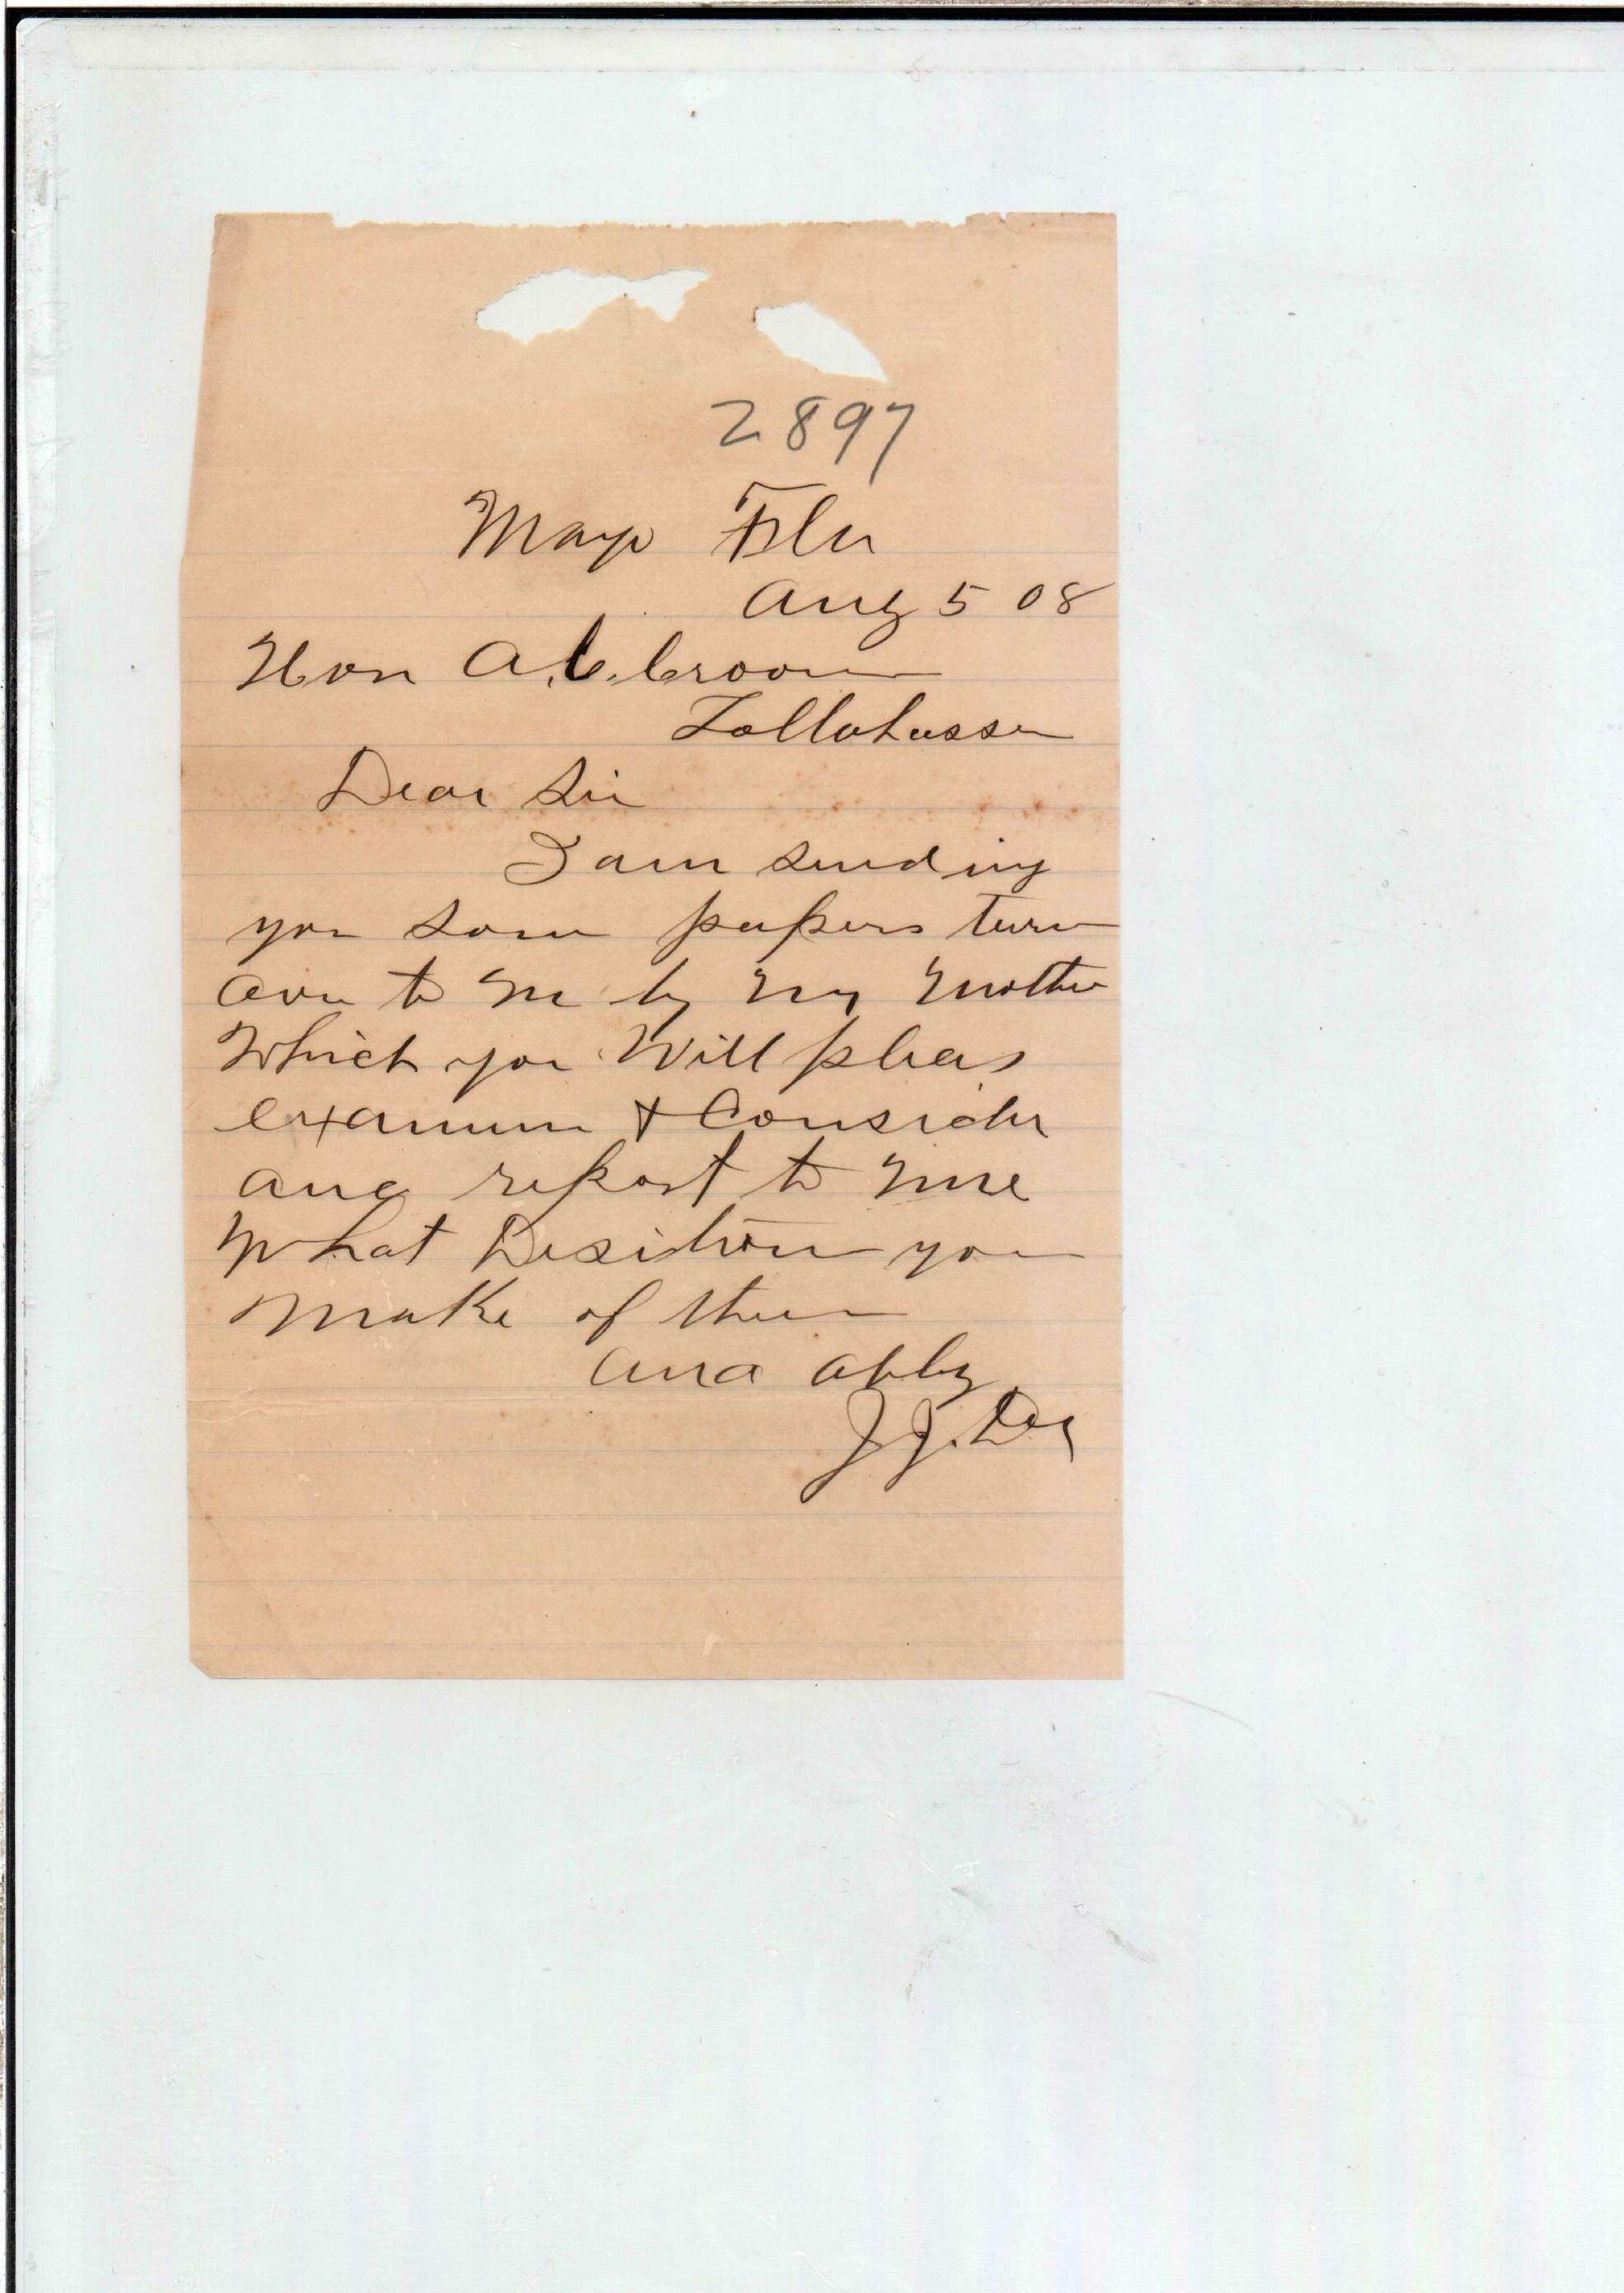 2897
Mayo Fla
Aug 5 08
Hon A.C. Croom
Tallahassee
Dear Sir
I am sending
you some papers turn
over to me by my mother
Which you Will pleas
examine + Consider
and report to me
What Desition you
make of them
and oblg
J.J. Dey